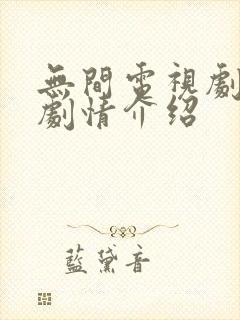 無間電視劇
劇情介紹
藍黛音